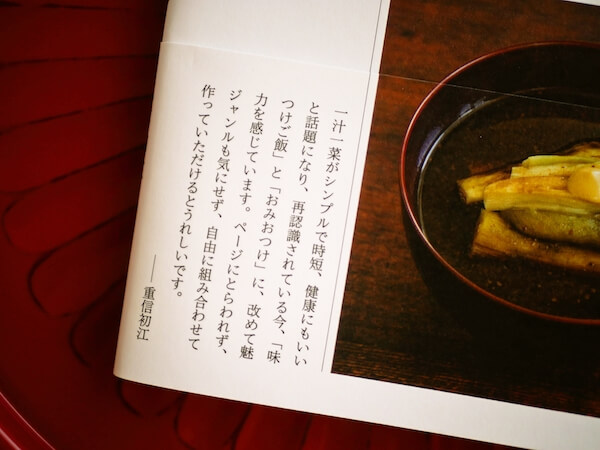 一汁一菜がシンプルで時短、健康にもいい
と話題になり、再認識されている今、「味
つけご飯」と「おみおつけ」に、改めて魅
力を感じています。ページにとらわれず、
ジャンルも気にせず、自由に組み合わせて
作っていただけるとうれしいです。
──重信初江